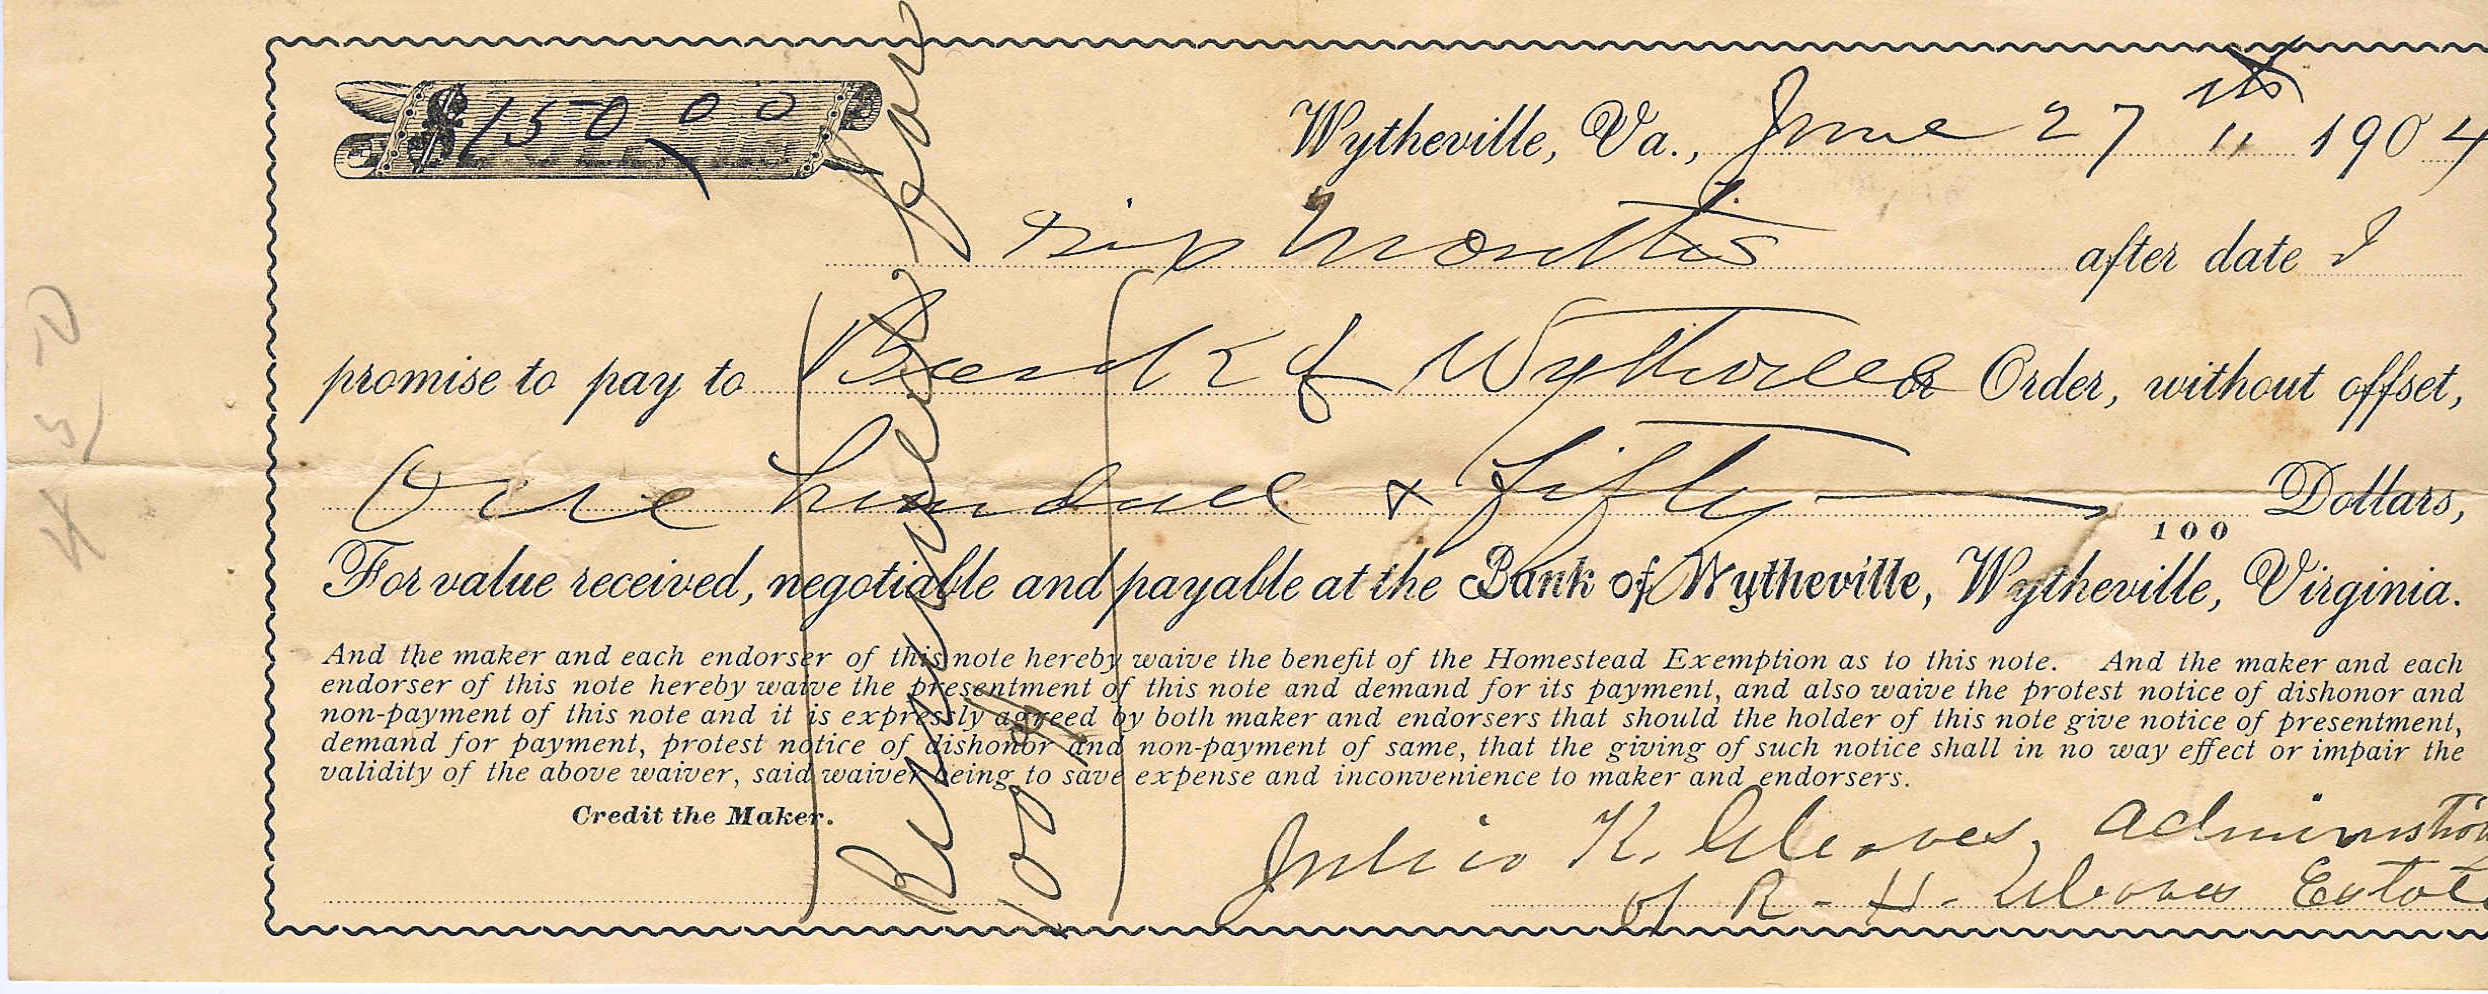 $150.00
Wytheville, Va., June 27th 1904
six Months after date I
promise to pay to Bank of Wytheville or Order, without offset,
One hundred & fifty 100 Dollars,
For value received, negotiable and payable at the Bank of Wytheville, Wytheville, Virginia.
And the maker and each endorser of this note hereby waive the benefit of the Homestead Exemption as to this note. And the maker and each
endorser of this note hereby waive the presentment of this note and demand for its payment, and also waive the protest notice of dishonor and
non-payment of this note and it is expressly agreed by both maker and endorsers that should the holder of this note give notice of presentment,
demand for payment, protest notice of dishonor and non-payment of same, that the giving of such notice shall in no way effect or impair the
validity of the above waiver, said waiver being to save expense and inconvenience to maker and endorsers.
Credit the Maker.
K. Gleaves, Administrator
of R. H. Gleaves Estate
Renewed for